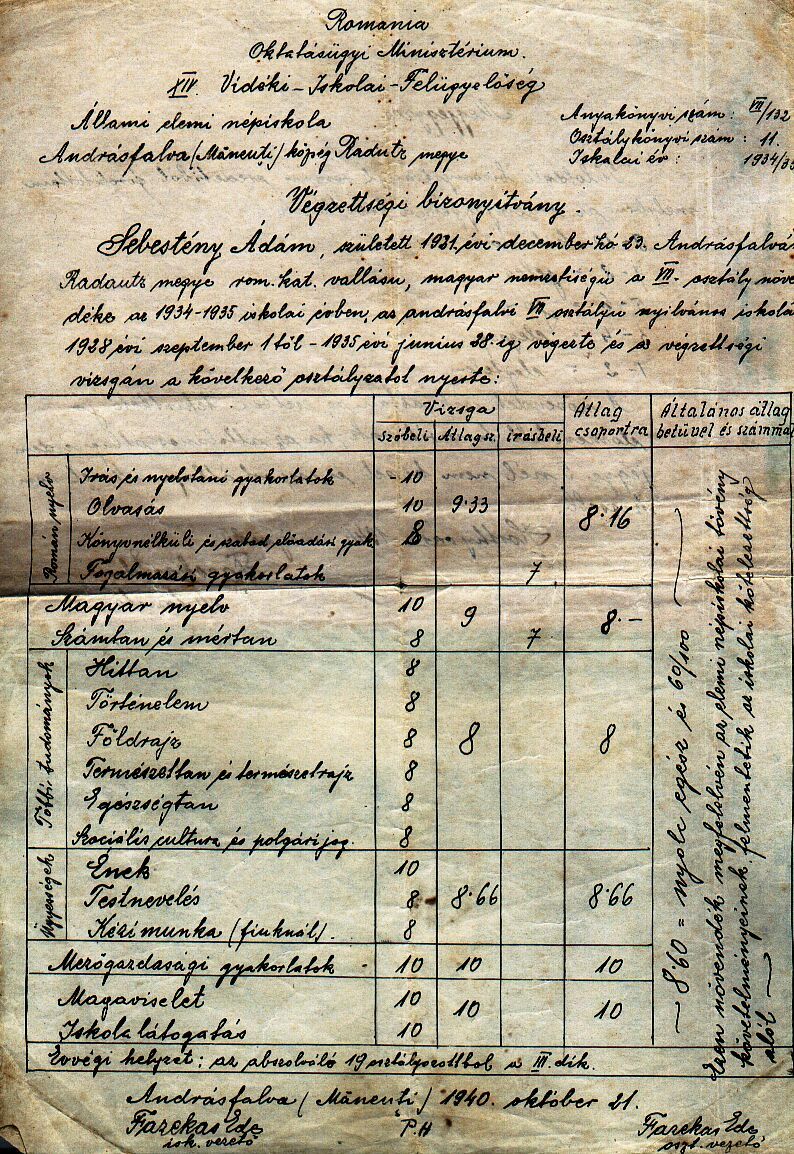 Romania
Oktatásügyi Minisztérium.
XIV. Vidéki-Iskolai-Felügyelőség
Állami elemi népiskola
Andrásfalva (Măneuti) község Radutz megye
Anyakönyvi szám: VII/132
Osztálykönyvi szám: 11.
Iskolai év: 1934/35
Végzettségi bizonyítvány.
Sebestény Ádám, született 1921. évi december hó 23. Andrásfalvá
Radautz megye rom. kat. vallásu, magyar nemzetiségü a VII- osztály növe
déke az 1934-1935 iskolai évben, az andrásfalvi VII osztályu nyilvános iskolá
1928 évi szeptember 1től - 1935 évi junius 28-ig végezte és a végzettségi
vizsgán a következő osztályzatot nyeste:
Vizsga
Szóbeli Átlagsz. irásbeli
Átlag csoportra
Általános átlag betüvel és számmal
Román nyelv
Irás és nyelvtani gyakorlatok 10
Olvasás 10 9.33 8.16
Könyvnélküli és szabad előadási gyak. 8
Fogalmazási gyakorlatok 7
Magyar nyelv 10 9 8.-
Számtan és mértan 8 7
Többi tudományok
Hittan 8
Történelem 8
Földrajz 8 8 8
Természettan és természetrajz 8
Egészségtan 8
Szociális cultura és polgári jog. 8
Ügyességek
Ének 10
Testnevelés 8 8.66 8.66
Kézimunka (fiuknál). 8
Mezőgazdasági gyakorlatok 10 10 10
Magaviselet 10 10 10
Iskola látogatás 10
8.60 = nyolc egész és 60/100
Ezen növendék megfelelvén az elemi népiskolai törvény
követelményeinek felmentetik az iskolai kötelezettség
alól
Évvégi helyzet: az abszolváló 19 osztályozottból a III. dik.
Andrásfalva (Măneuti) 1940. október 21.
Fazekas Ede P.H Fazekas Ede
isk. vezető oszt. vezető